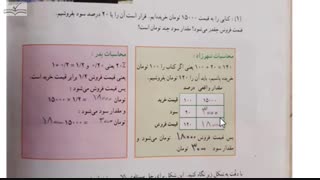 (۱) کتابی را به قیمت ۱۵۰۰۰ تومان خریده‌ایم. قرار است آن را با ۲۰ درصد سود بفروشیم.
قیمت فروش چقدر می‌شود؟ مقدار سود چند تومان است؟
محاسبات شهرزاد:
۱۰۰ + ۲۰ = ۱۲۰
یعنی اگر کتاب را ۱۰۰ تومان
خریده باشیم، باید آن را ۱۲۰ تومان بفروشیم.
درصد مقدار واقعی
قیمت خرید ۱۰۰ ۱۵۰۰۰
سود ۲۰ ۳۰۰۰
قیمت فروش ۱۲۰ ۱۸۰۰۰
پس قیمت فروش ۱۸۰۰۰ تومان می‌شود و
مقدار سود ۳۰۰۰ تومان.
محاسبات پدر:
۲۰٪ یعنی ۰/۲
۱ + ۰/۲ = ۱/۲
قیمت فروش ۱/۲ برابر قیمت خرید است.
پس قیمت فروش می‌شود:
۱۵۰۰۰ × ۱/۲ = ۱۸۰۰۰ تومان
و مقدار سود می‌شود:
تومان